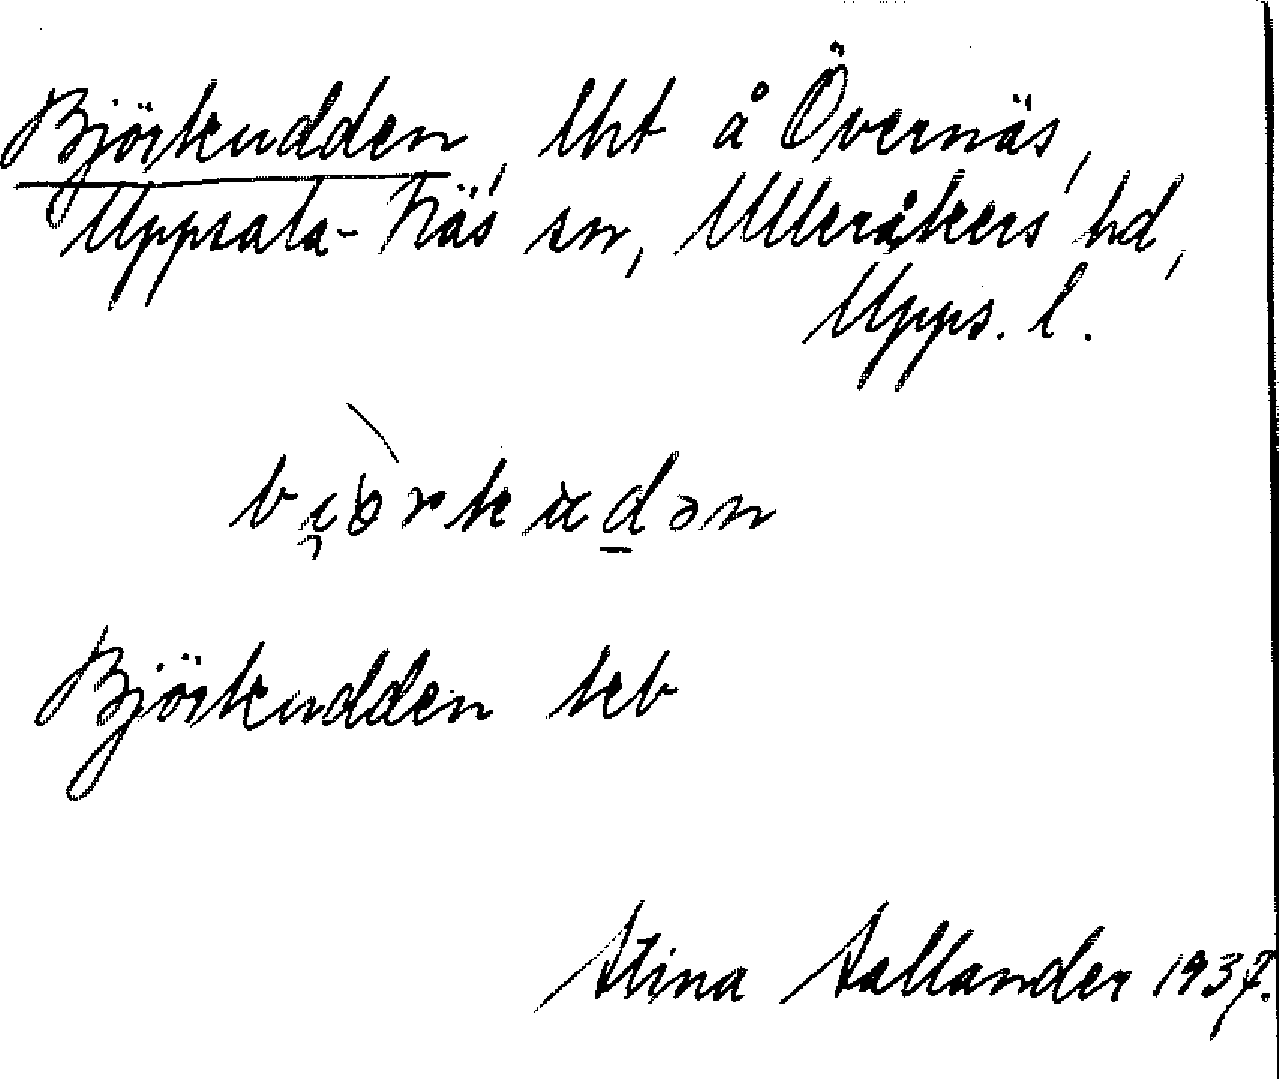 Björkudden, lht å Övernäs,
Uppsala-Näs sn, Ulleråkers hd,
Upps. l.
Björkudden keb
Stina Sallander 1937.